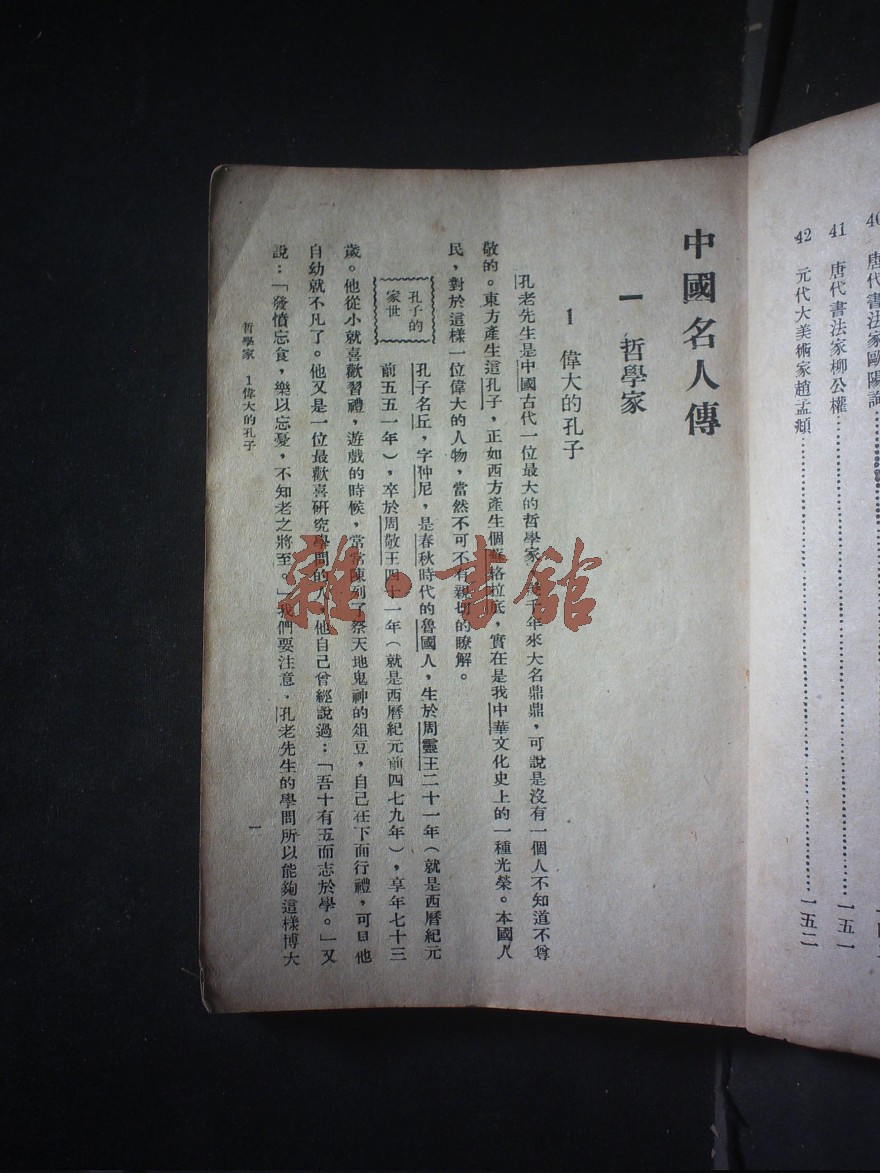 40 唐代書法家歐陽詢
41 唐代書法家柳公權……一五一
42 元代大美術家趙孟頫……一五二
中國名人傳
一 哲學家
1 偉大的孔子
孔老先生是中國古代一位最大的哲學家，幾千年來大名鼎鼎，可說是沒有一個人不知道不尊
敬的。東方產生這孔子，正如西方產生個蘇格拉底，實在是我中華文化史上的一種光榮。本國人
民，對於這樣一位偉大的人物，當然不可不有親切的瞭解。
孔子的
家世
孔子名丘，字仲尼，是春秋時代的魯國人，生於周靈王二十一年（就是西曆紀元
前五五一年），卒於周敬王四十一年（就是西曆紀元前四七九年），享年七十三
歲。他從小就喜歡習禮，遊戲的時候，常常陳列了祭天地鬼神的俎豆，自己在下面行禮，可見他
自幼就不凡了。他又是一位最歡喜研究學問的人，他自己曾經說過：「吾十有五而志於學。」又
說：「發憤忘食，樂以忘憂，不知老之將至。」我們要注意，孔老先生的學問所以能夠這樣博大
哲學家 1偉大的孔子
一
雜·書館